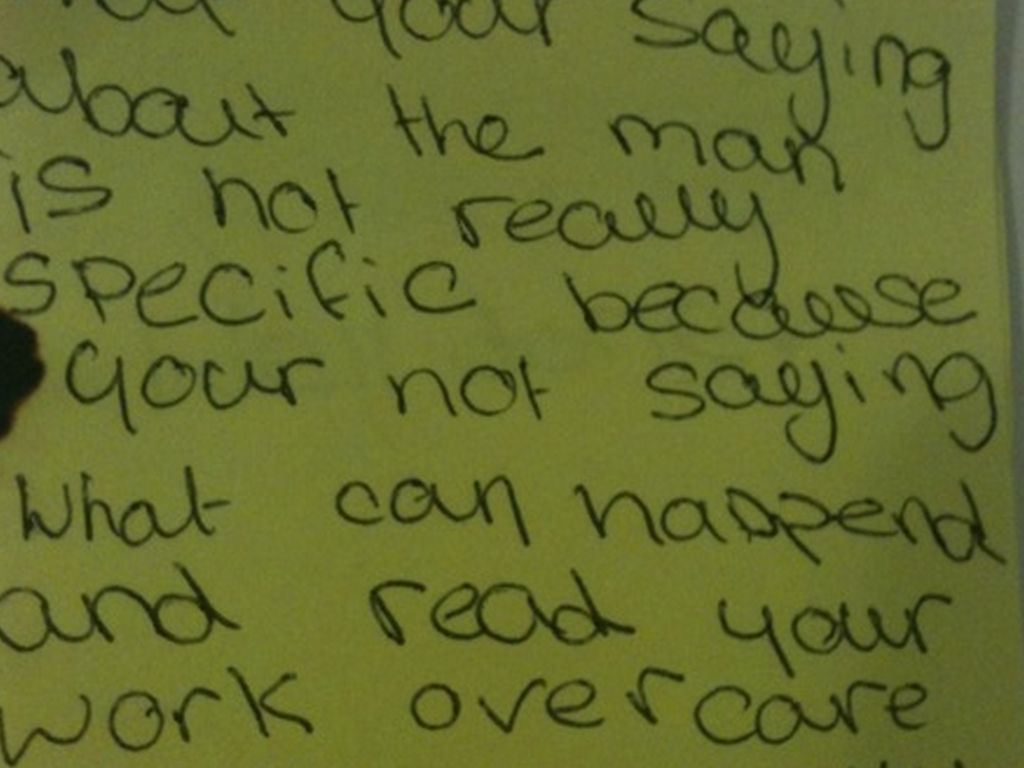 your saying
about the man
is not really
specific because
your not saying
what can happend
and read your
work over care